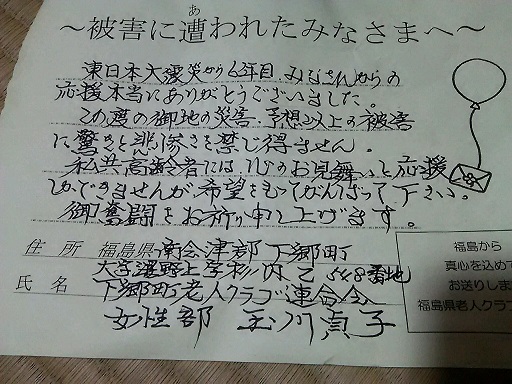 ～被害に遭われたみなさまへ～
あ
東日本大震災から6年目、みなさんからの
応援本当にありがとうございました。
この度の御地の災害、予想以上の被害
に驚きと悲惨さを禁じ得ません。
私共高齢者には、心のお見舞いと応援
しかできませんが、希望をもってがんばって下さい。
御奮闘をお祈り申し上げます。
住所 福島県南会津郡下郷町
大字 上字杉ノ内乙548番地
氏名 下郷町老人クラブ連合会
女性部 玉川貞子
福島から
真心を込めて
お送りしま
福島県老人クラブ